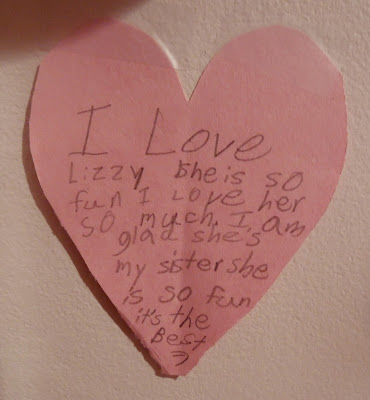 I Love
Lizzy She is so
fun I Love her
so much. I am
glad she's
my sister she
is so fun
it's the
Best